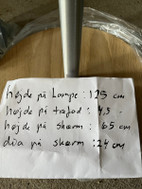 højde på Lampe : 125 cm
højde på tafod : 4,5
højde på skærm : 65 cm
dia på skærm : 24 cm